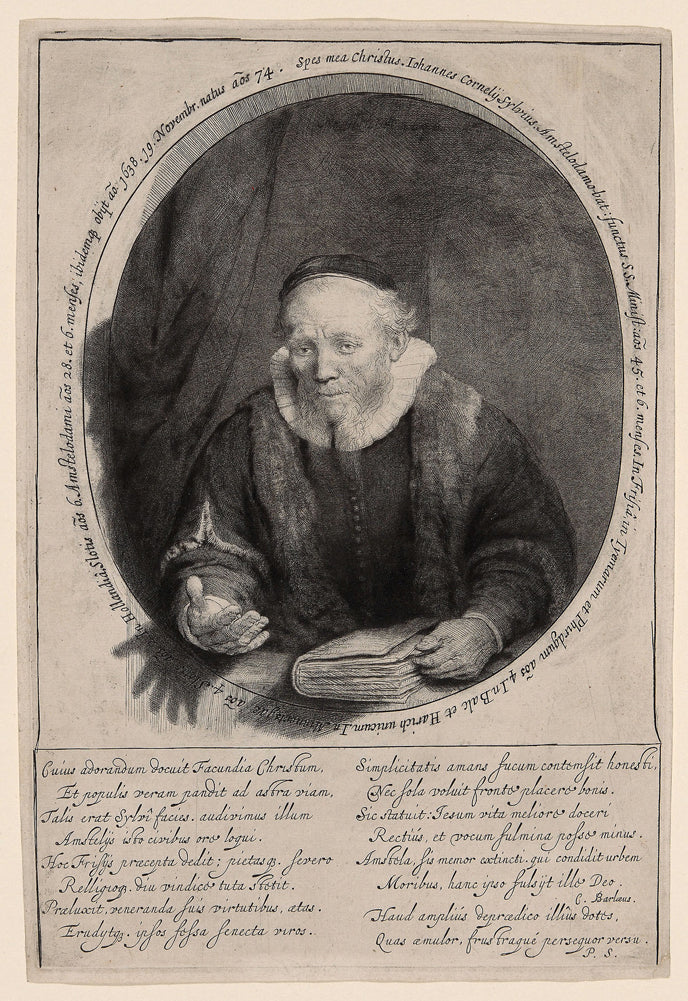 Spes mea Christus. Iohannes Cornelij Sylvius. Amstelodamobat: functus S.S. Minist: aōs 45. et 6. menses. In Frisiâ, in Tyemarum et Phirdgum aōs 4. In Balc et Harich unicum. In aōs 4. In Hollandiâ Slotis aōs 6. Amstelodami aōs 28. et 6. menses, ibidemq3 obijt aō. 1638. 19. Novembr. natus aōs 74.
Cuius adorandum docuit Facundia Christum,
Et populis veram pandit ad astra viam,
Talis erat Sylvî facies. audivimus illum
Amstelijs isto civibus ore loqui.
Hoc Frisijs præcepta dedit; pietasq3. severo
Relligioq3. diu vindice tuta stetit.
Præluxit, veneranda suis virtutibus, ætas.
Erudytq3. ipsos fessa senecta viros.
Simplicitatis amans fucum contemsit honesti,
Nec sola voluit fronte placere bonis.
Sic statuit: Iesum vita meliore doceri
Rectius, et vocum fulmina posse minus.
Amstela, sis memor extincti. qui condidit urbem
Moribus, hanc ipso fulsijt ille Deo.
C. Barlæus.
Haud amplius deprædico illius dotes,
Quas æmulor, frustraque persequor versu.
P. S.